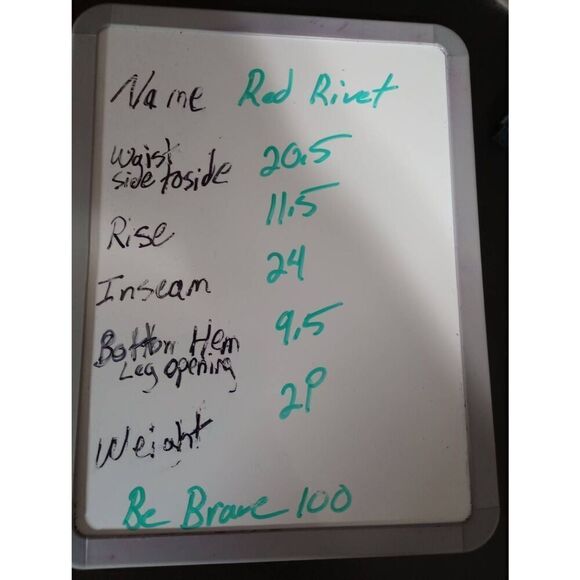 Name Red Rivet
Waist
side to side 20.5
Rise 11.5
Inseam 24
Bottom Hem
Leg opening 9.5
Weight 2P
Be Brave 100